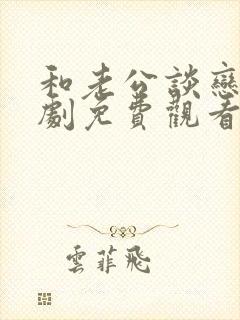 和老公談戀
劇免費觀看
雲菲飛